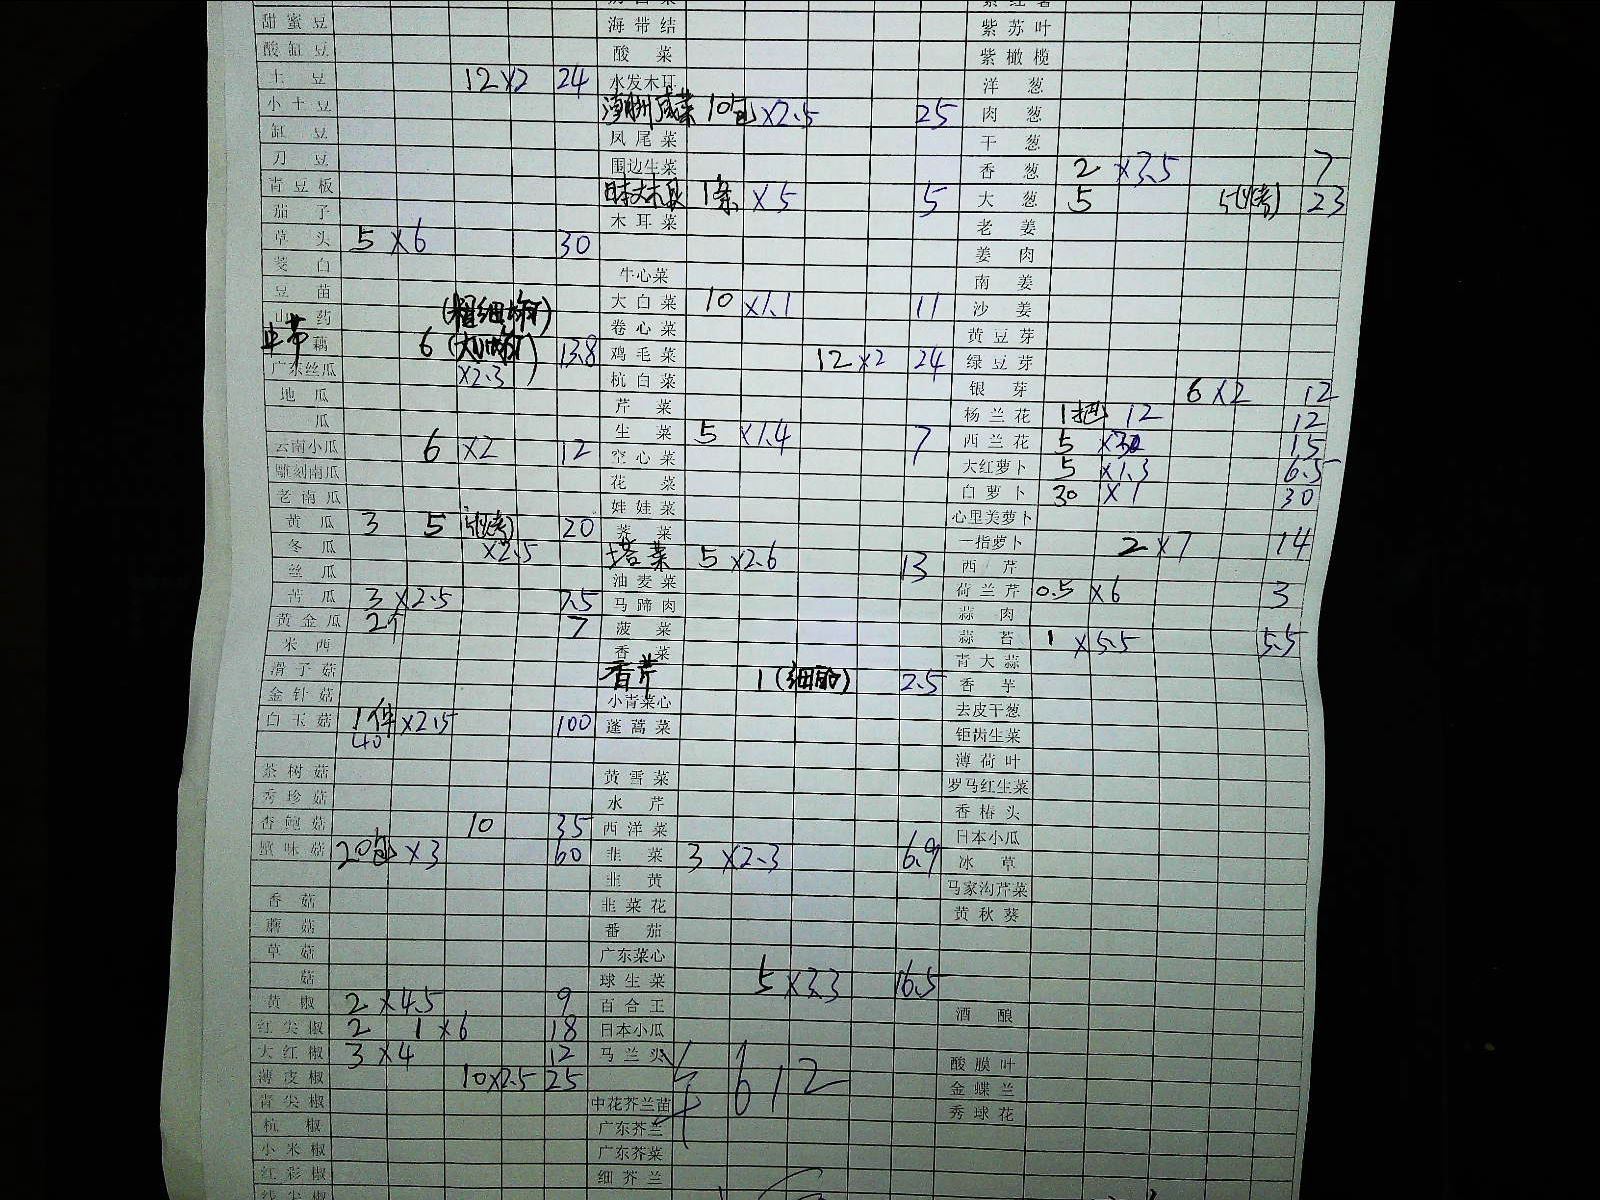 甜蜜豆
酸缸豆
土豆 12×2 24
小土豆
缸豆
刀豆
青豆板
茄子
草头 5×6 30
茭白
豆苗
山药
藕 6 13.8
广东丝瓜 ×2.3
地瓜
瓜
云南小瓜 6×2 12
雕刻南瓜
老南瓜
黄瓜 3 5 20
冬瓜 ×2.5
丝瓜
苦瓜 3×2.5 7.5
黄金瓜 2个 7
米西
滑子菇
金针菇
白玉菇 1件×2.5 100
40
茶树菇
秀珍菇
杏鲍菇 10 35
蟹味菇 20包×3 60
香菇
蘑菇
草菇
菇
黄椒 2×4.5 9
红尖椒 2 1×6 18
大红椒 3×4 12
薄皮椒 10×2.5 25
青尖椒
杭椒
小米椒
红彩椒
海带结
酸菜
水发木耳
潮州咸菜 10包×2.5 25
凤尾菜
围边生菜
1条×5 5
木耳菜
牛心菜
大白菜 10×1.1 11
卷心菜
鸡毛菜 12×2 24
杭白菜
芹菜
生菜 5×1.4 7
空心菜
花菜
娃娃菜
荠菜
塔菜 5×2.6 13
油麦菜
马蹄肉
菠菜
香菜
香芹 1(细的) 2.5
小青菜心
蓬蒿菜
黄雪菜
水芹
西洋菜
韭菜 3×2.3 6.9
韭黄
韭菜花
番茄
广东菜心
球生菜 5×3.3 16.5
百合王
日本小瓜
马兰头
612
中花芥兰苗
广东芥兰
广东芥菜
细芥兰
紫苏叶
紫橄榄
洋葱
肉葱
干葱
香葱 2×3.5 7
大葱 5 23
老姜
姜肉
南姜
沙姜
黄豆芽
绿豆芽
银芽 6×2 12
杨兰花 1把 12 12
西兰花 5 15
大红萝卜 5×1.3 6.5
白萝卜 30×1 30
心里美萝卜
一指萝卜 2×7 14
西芹
荷兰芹 0.5×6 3
蒜肉
蒜苔 1×5.5 5.5
青大蒜
香芋
去皮干葱
钜齿生菜
薄荷叶
罗马红生菜
香椿头
日本小瓜
冰草
马家沟芹菜
黄秋葵
酒酿
酸膜叶
金蝶兰
秀球花